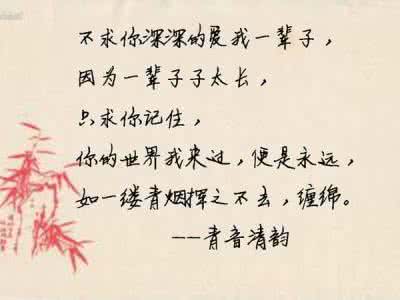 不求你深深的爱我一辈子，
因为一辈子子太长，
只求你记住，
你的世界我来过，便是永远，
如一缕青烟挥之不去，缠绵。
--青音清韵